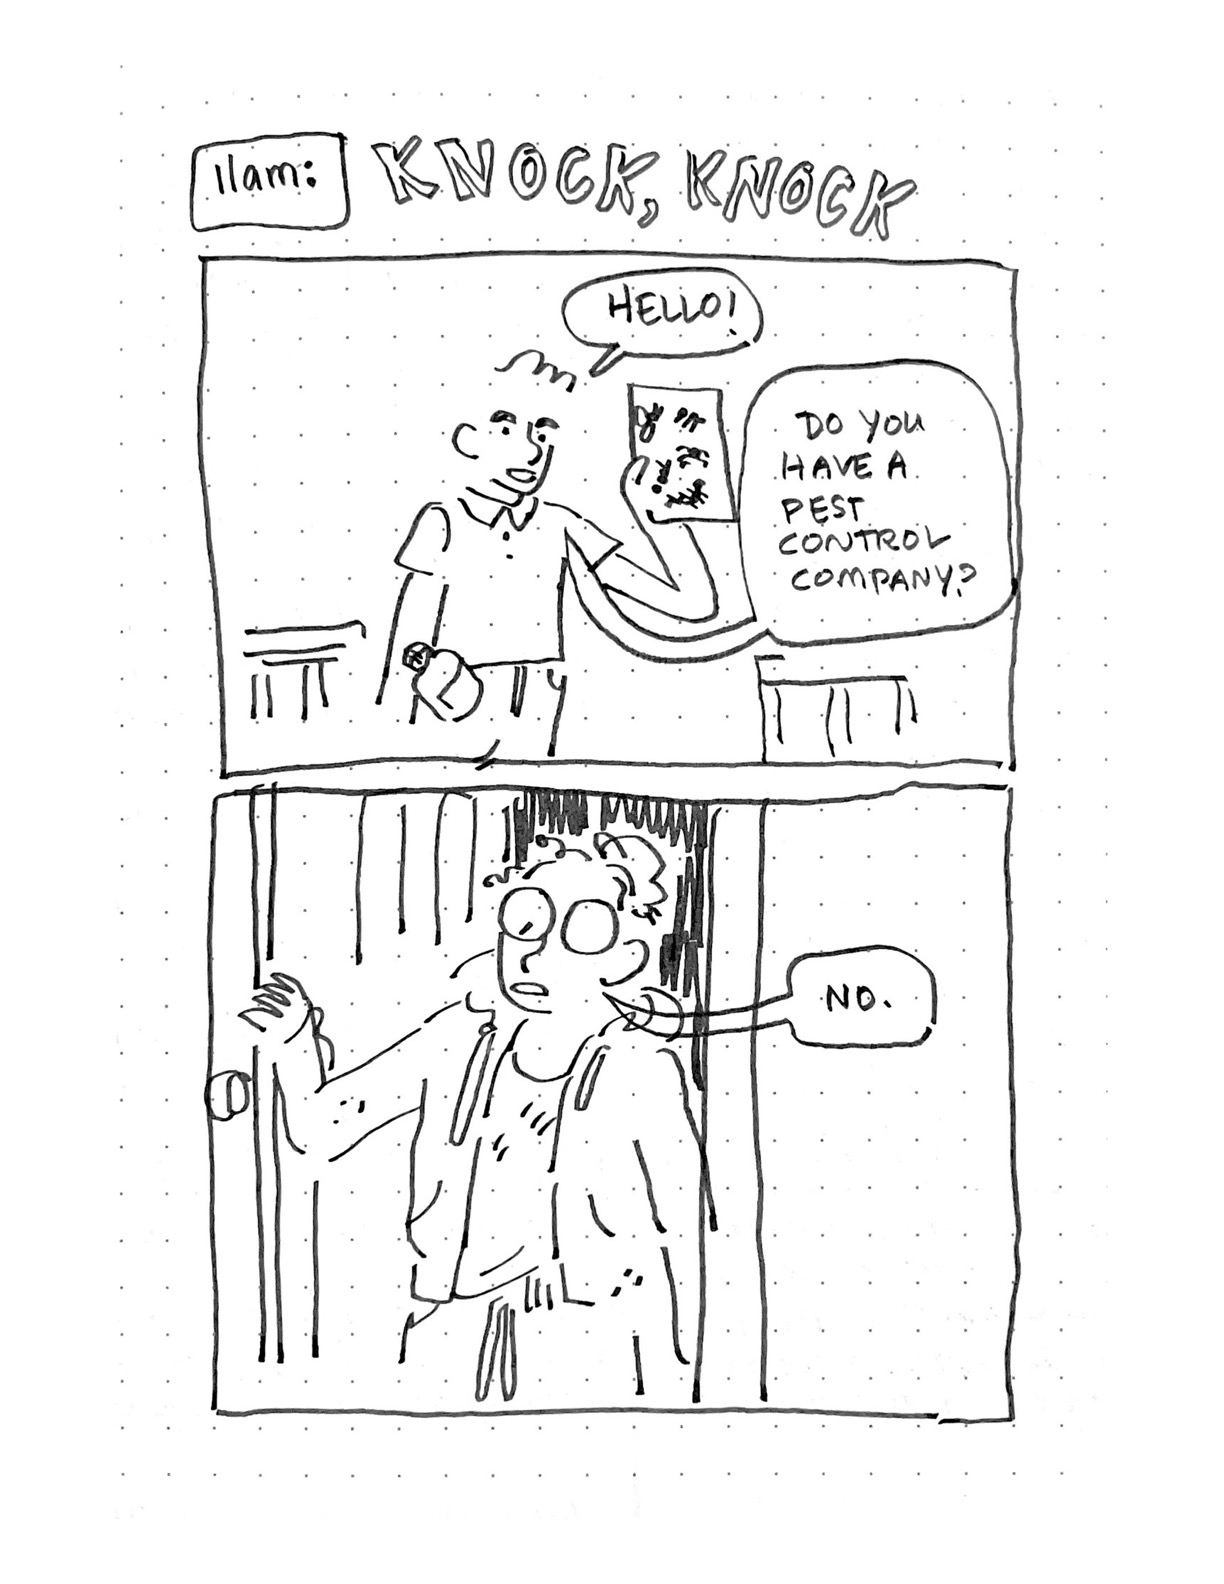 11am: KNOCK, KNOCK
HELLO!
DO YOU
HAVE A
PEST
CONTROL
COMPANY?
NO.